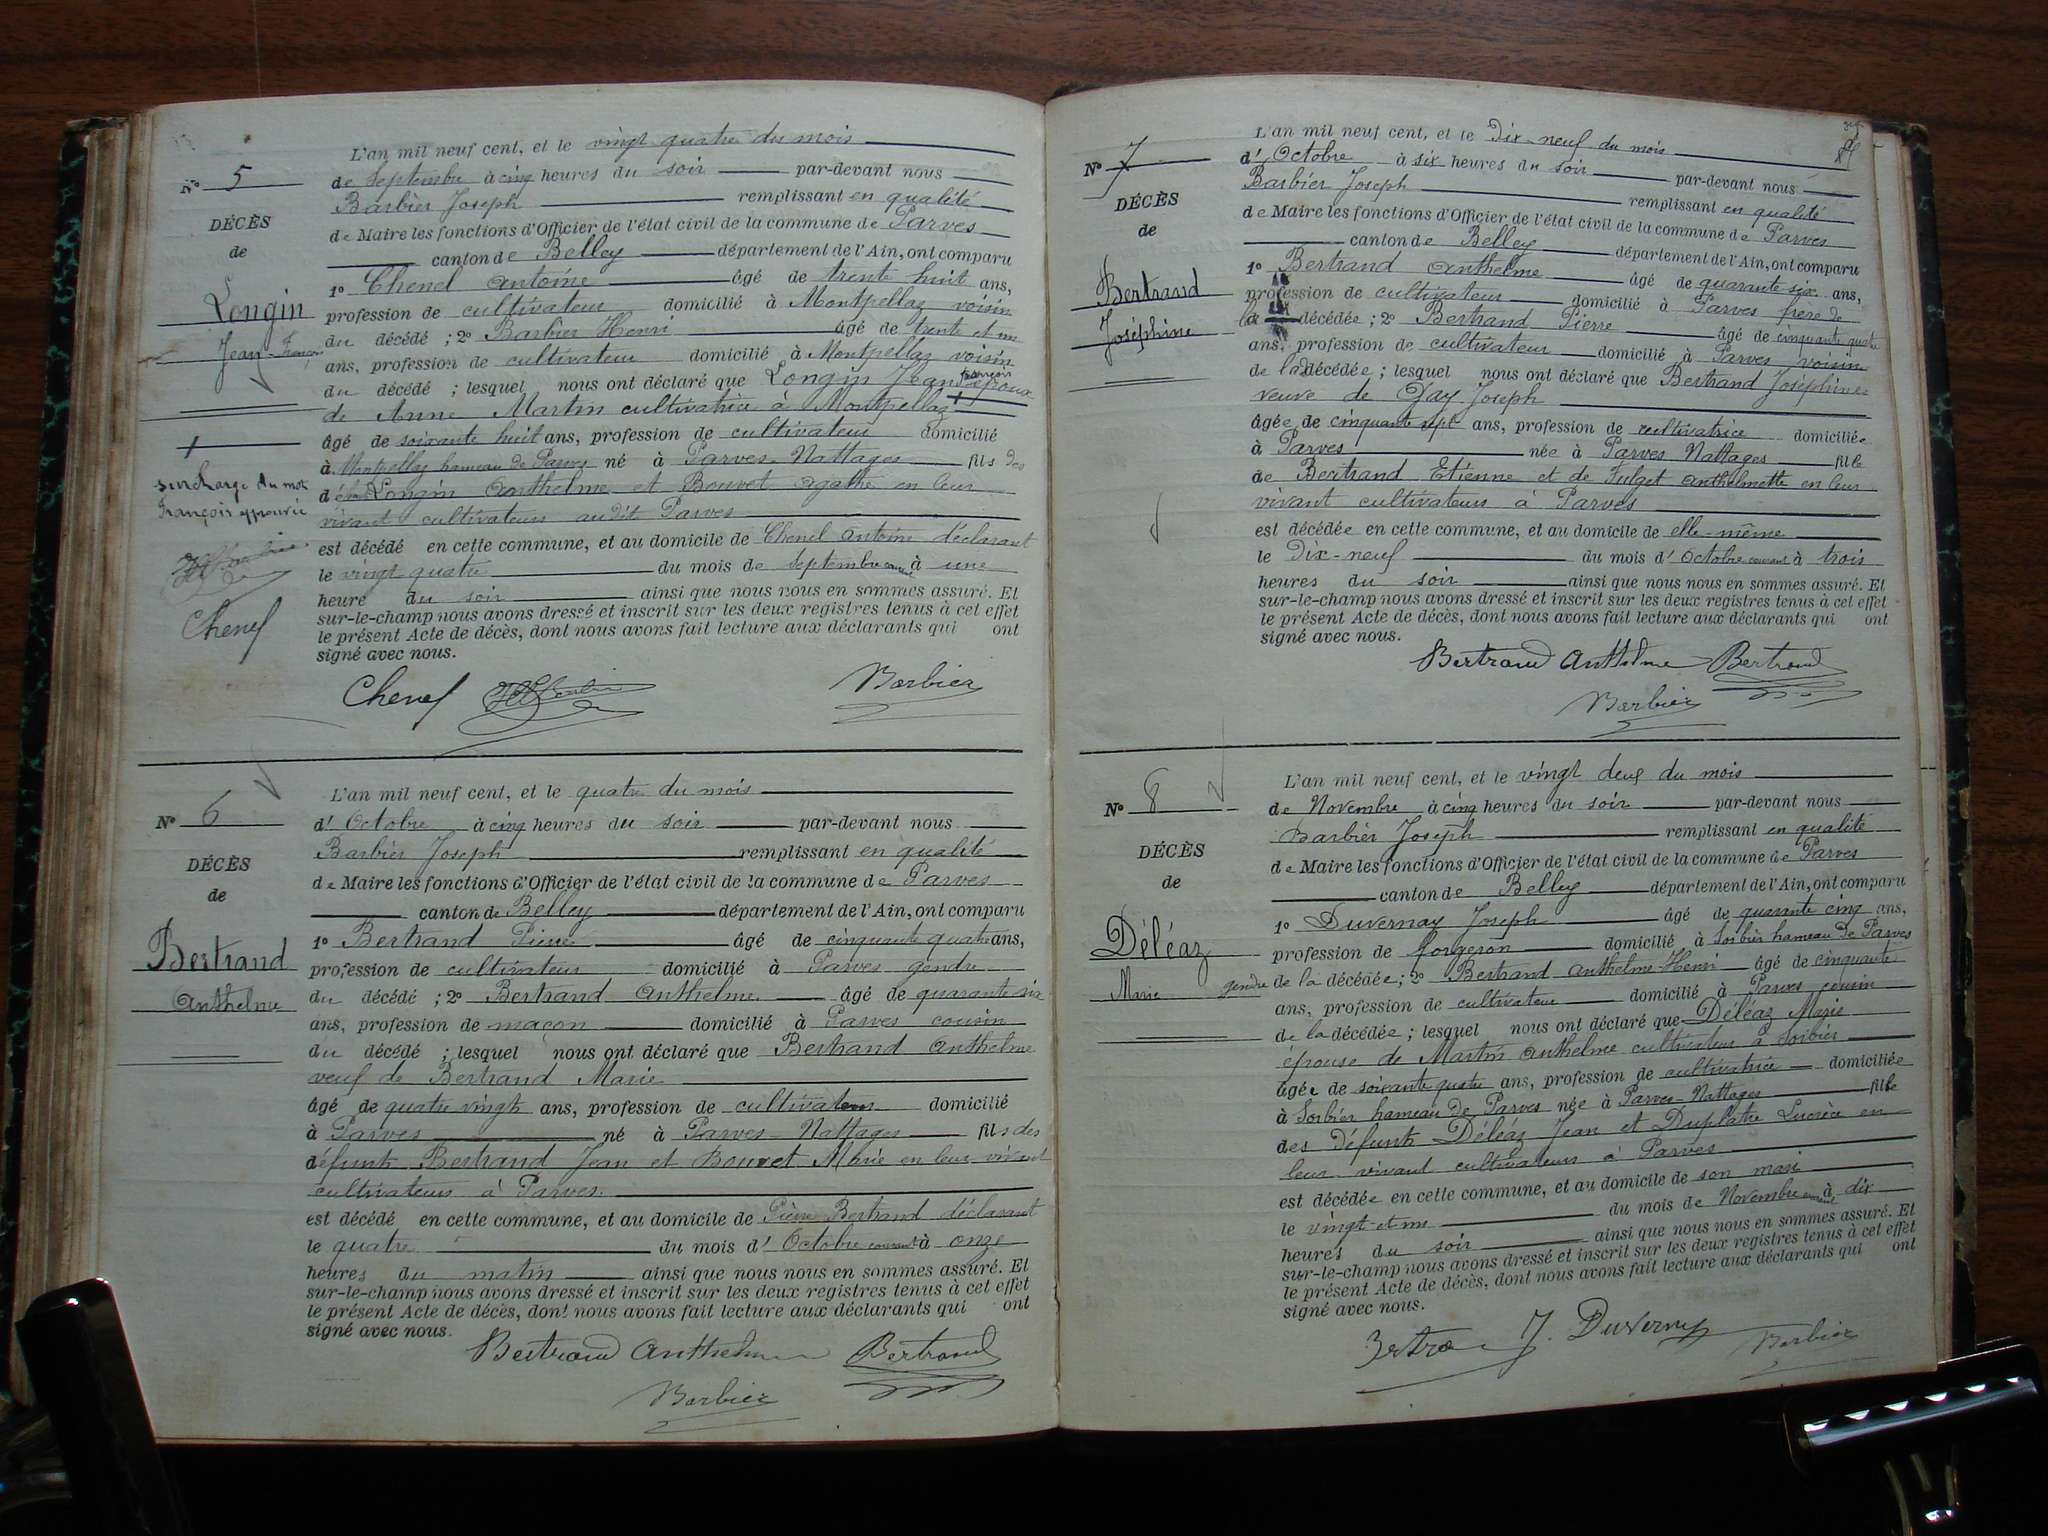 L'an mil neuf cent, et le vingt quatre du mois
N° 5
de Septembre à cinq heures du soir par-devant nous
Barbier Joseph remplissant en qualité
DÉCÈS
de Maire les fonctions d'Officier de l'état civil de la commune de Parves
de
canton de Belley département de l'Ain, ont comparu
1° Chenel Antoine âgé de trente huit ans,
Longin
profession de cultivateur domicilié à Montpellaz voisin
du décédé ; 2° Barbier Henri âgé de trente et un
Jean-François
ans, profession de cultivateur domicilié à Montpellaz voisin
du décédé ; lesquel nous ont déclaré que Longin Jean françois époux
de Anne Martin cultivatrice à Montpellaz
âgé de soixante huit ans, profession de cultivateur domicilié
à Montpellaz hameau de Parves né à Parves-Nattages fils des
surcharge du mot
françois approuvée
défunts Longin Anthelme et Bouvet Agathe en leur
vivant cultivateurs audit Parves
est décédé en cette commune, et au domicile de Chenel Antoine déclarant
le vingt quatre du mois de Septembre courant à une
heure du soir ainsi que nous nous en sommes assuré. Et
sur-le-champ nous avons dressé et inscrit sur les deux registres tenus à cet effet
le présent Acte de décès, dont nous avons fait lecture aux déclarants qui ont
signé avec nous.
Chenel
Chenel Barbier
L'an mil neuf cent, et le quatre du mois
N° 6
d'Octobre à cinq heures du soir par-devant nous
Barbier Joseph remplissant en qualité
DÉCÈS
de Maire les fonctions d'Officier de l'état civil de la commune de Parves
de
canton de Belley département de l'Ain, ont comparu
1° Bertrand Pierre âgé de cinquante quatre ans,
Bertrand
profession de cultivateur domicilié à Parves gendre
du décédé ; 2° Bertrand Anthelme âgé de quarante six
Anthelme
ans, profession de maçon domicilié à Parves cousin
du décédé ; lesquel nous ont déclaré que Bertrand Anthelme
veuf de Bertrand Marie
âgé de quatre vingts ans, profession de cultivateur domicilié
à Parves né à Parves-Nattages fils des
défunts Bertrand Jean et Bouvet Marie en leur vivant
cultivateurs à Parves.
est décédé en cette commune, et au domicile de Pierre Bertrand déclarant
le quatre du mois d'Octobre courant à onze
heures du matin ainsi que nous nous en sommes assuré. Et
sur-le-champ nous avons dressé et inscrit sur les deux registres tenus à cet effet
le présent Acte de décès, dont nous avons fait lecture aux déclarants qui ont
signé avec nous.
Bertrand Anthelme Bertrand
Barbier
L'an mil neuf cent, et le Dix-neuf du mois
N° 7
d'Octobre à six heures du soir par-devant nous
Barbier Joseph remplissant en qualité
DÉCÈS
de Maire les fonctions d'Officier de l'état civil de la commune de Parves
de
canton de Belley département de l'Ain, ont comparu
1° Bertrand Anthelme âgé de quarante six ans,
Bertrand
profession de cultivateur domicilié à Parves frère de
Joséphine
la décédée ; 2° Bertrand Pierre âgé de cinquante quatre
ans, profession de cultivateur domicilié à Parves voisin
de la décédée ; lesquel nous ont déclaré que Bertrand Joséphine
veuve de Gay Joseph
âgée de cinquante sept ans, profession de cultivatrice domiciliée
à Parves née à Parves Nattages fille
de Bertrand Etienne et de Fulget Anthelmette en leur
vivant cultivateurs à Parves
est décédée en cette commune, et au domicile de elle-même
le Dix-neuf du mois d'Octobre courant à trois
heures du soir ainsi que nous nous en sommes assuré. Et
sur-le-champ nous avons dressé et inscrit sur les deux registres tenus à cet effet
le présent Acte de décès, dont nous avons fait lecture aux déclarants qui ont
signé avec nous.
Bertrand Anthelme Bertrand
Barbier
L'an mil neuf cent, et le vingt deux du mois
N° 8
de Novembre à cinq heures du soir par-devant nous
Barbier Joseph remplissant en qualité
DÉCÈS
de Maire les fonctions d'Officier de l'état civil de la commune de Parves
de
canton de Belley département de l'Ain, ont comparu
1° Duvernay Joseph âgé de quarante cinq ans,
Déléaz
profession de forgeron domicilié à Sorbier hameau de Parves
Marie
gendre de la décédée ; 2° Bertrand Anthelme Henri âgé de cinquante
ans, profession de cultivateur domicilié à Parves cousin
de la décédée ; lesquel nous ont déclaré que Déléaz Marie
épouse de Martin Anthelme cultivateur à Sorbier
âgée de soixante quatre ans, profession de cultivatrice domiciliée
à Sorbier hameau de Parves née à Parves-Nattages fille
des défunts Déléaz Jean et Duplatre Lucrèce en
leur vivant cultivateurs à Parves
est décédée en cette commune, et au domicile de son mari
le vingt-et-un du mois de Novembre courant à dix
heures du soir ainsi que nous nous en sommes assuré. Et
sur-le-champ nous avons dressé et inscrit sur les deux registres tenus à cet effet
le présent Acte de décès, dont nous avons fait lecture aux déclarants qui ont
signé avec nous.
J. Duvernay Barbier